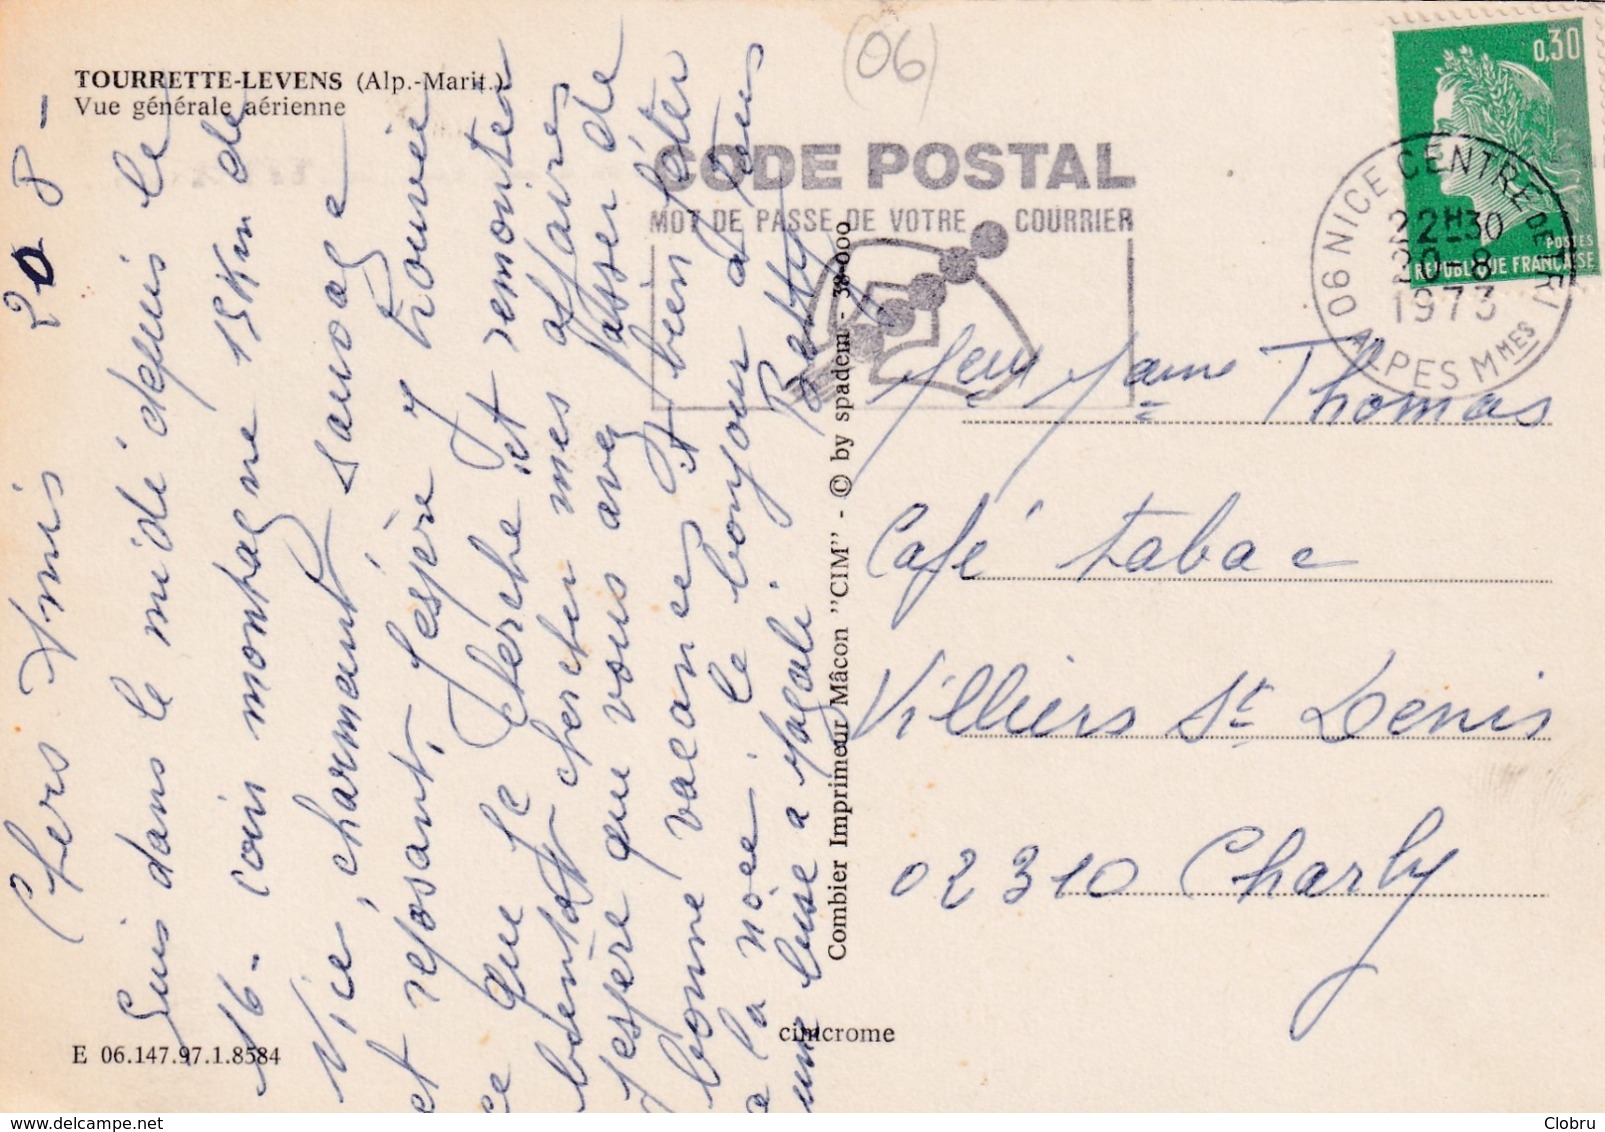 TOURRETTE-LEVENS (Alp.-Marit.)
Vue générale aérienne
(06)
CODE POSTAL
MOT DE PASSE DE VOTRE COURRIER
0,30
POSTES
REPUBLIQUE FRANÇAISE
06 NICE CENTRE DE TRI
22H30
20-8
1973
ALPES MMES
20 8 -
Chers Amis
Suis dans le midi depuis le
16 - coin montagne 15 Km de
Nice, charmeant sauvage
et reposant, J'espère y trouvée
ce que Je cherche, et remonter
bientôt chercher mes affaires
J'espere que vous avez passer de
bonne vacances et bien fêter
la noce. le bonjour a tous
une bise a Magali. Betty
Combier Imprimeur Mâcon "CIM" - © by spadem - 38-000
Thomas
Café tabac
Villiers St Denis
02310 Charly
E 06.147.97.1.8584
cimcrome
Clobru